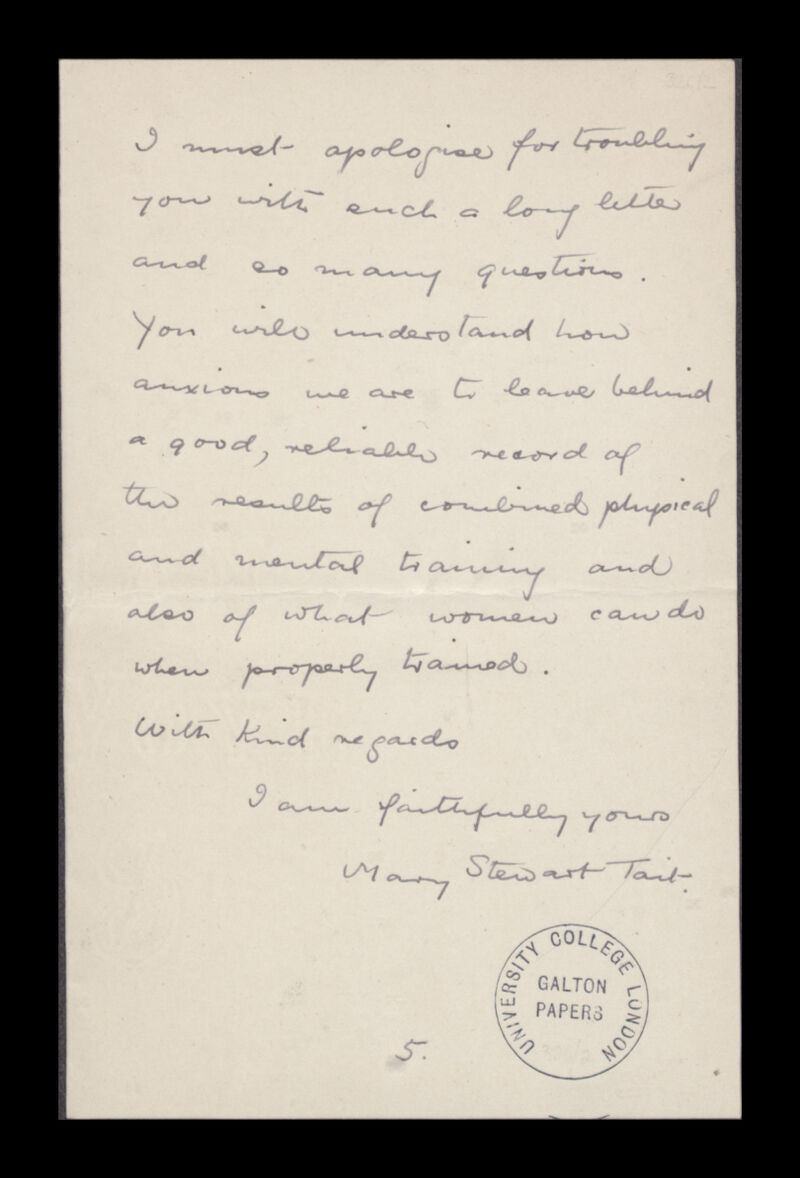 I must apologise for troubling
you with such a long letter
and so many questions.
You will understand how
anxious we are to leave behind
a good, reliable record of
the results of combined physical
and mental training and
also of what women can do
when properly trained.
With kind regards
I am faithfully yours
Mary Stewart Tait.
UNIVERSITY COLLEGE LONDON
GALTON
PAPERS
5.